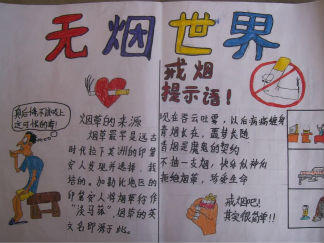 无烟世界
我后悔不该吸上
这可恨的毒!
烟草的来源
烟草最早是远古
时代拉丁美洲的印第
安人发现并选择,栽
培的。加勒比地区的
印第安人将烟草称作
“淡马菰”,烟草的英
文名即源于此。
戒烟
提示语!
现在吞云吐雾,以后病痛缠身
青烟长在,蓝梦长随
香烟是魔鬼的契约
不抽一支烟,快乐似神仙
拒绝烟草,珍爱生命
戒烟吧!
其实很简单!!